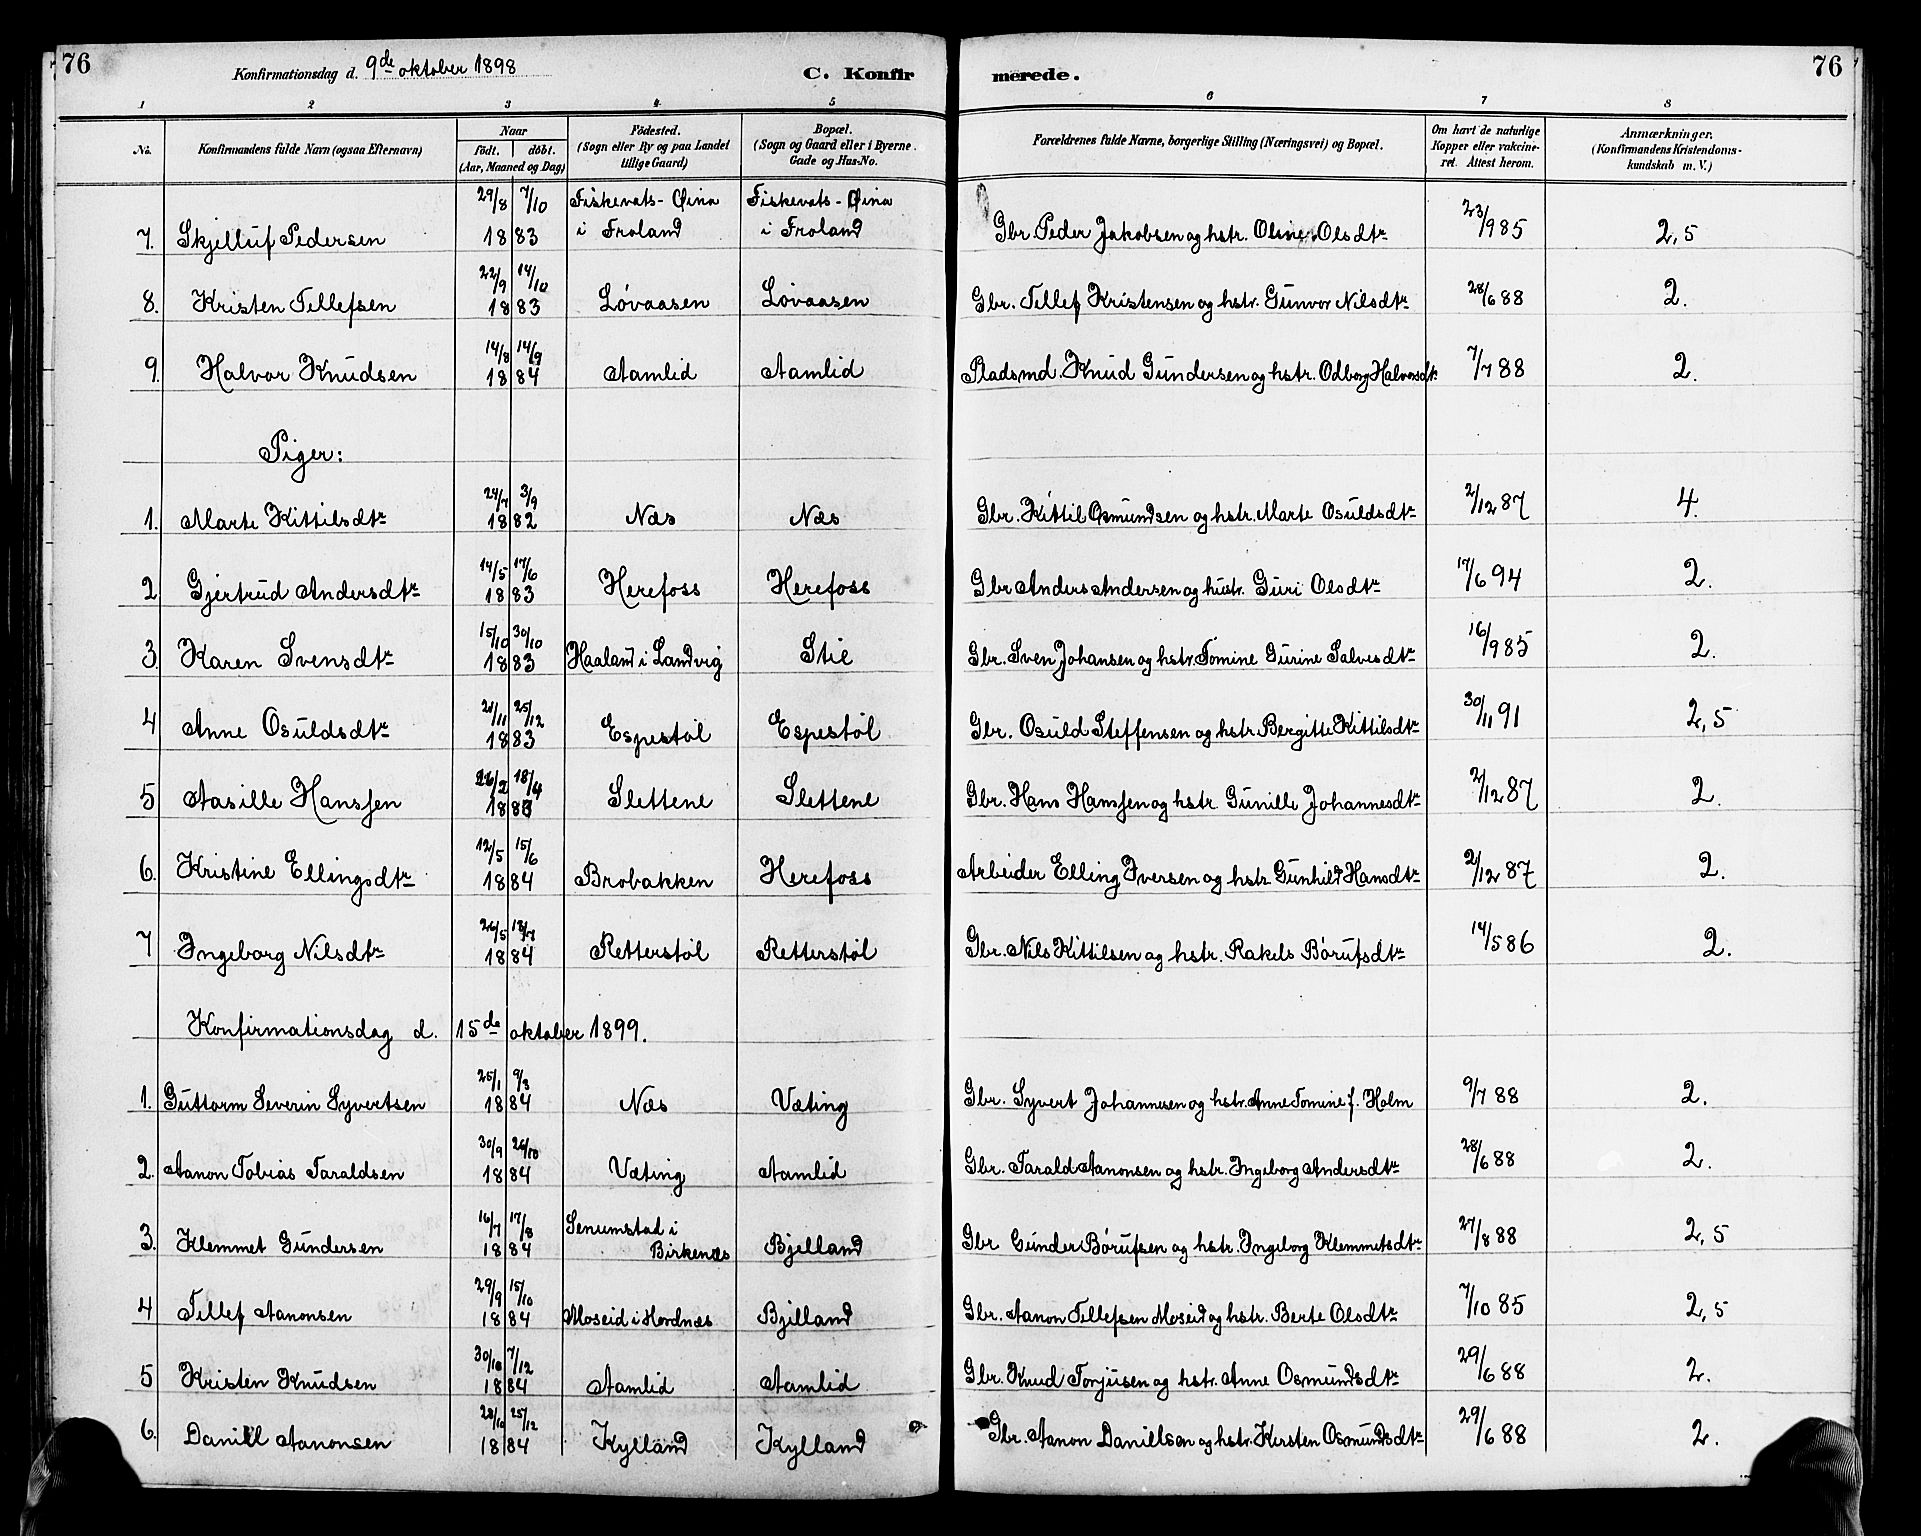 76
Konfirmationsdag d. 9de oktober 1898
C. Konfirmerede.
76
1 2 3 4 5 6 7 8
No.
Konfirmandens fulde Navn (ogsaa Efternavn)
Naar
født. døbt.
(Aar, Maaned og Dag)
Fødested.
(Sogn eller By og paa Landet
tillige Gaard)
Bopæl.
(Sogn og Gaard eller i Byerne
Gade og Hus-No.
Forældrenes fulde Navne, borgerlige Stilling (Næringsvei) og Bopæl.
Om havt de naturlige
Kopper eller vakcineret. Attest herom.
Anmærkninger.
(Konfirmandens Kristendomskundskab m. V.)
7. Skjelluf Pedersen 29/8 7/10 1883 Fiskevats-Øina i Froland Fiskevats-Øina i Froland Gbr Peder Jakobsen og hstr. Oline Olsdtr 23/9 85 2,5
8. Kristen Tellefsen 22/9 14/10 1883 Løvaasen Løvaasen Gbr. Tellef Kristensen og hstr. Gunvor Nilsdtr 28/6 88 2.
9. Halvor Knudsen 14/8 14/9 1884 Aamlid Aamlid Pladsmd. Knud Gundersen og hstr. Odborg Halvorsdtr 7/7 88 2.
Piger:
1. Marte Kittilsdtr 24/7 3/9 1882 Næs Næs Gbr. Kittil Osmundsen og hstr. Marte Osuldsdtr 2/12 87 4.
2 Gjertrud Andersdtr 14/5 17/6 1883 Herefoss Herefoss Gbr Anders Andersen og hustr. Guri Olsdtr 17/6 94 2.
3. Karen Svensdtr 15/10 30/10 1883 Haaland i Landvig Stie Gbr. Sven Johansen og hstr. Tomine Gurine Salvesdtr 16/9 85 2.
4 Anne Osuldsdtr 21/11 25/12 1883 Espestøl Espestøl Gbr. Osuld Steffensen og hstr Bergitte Kittilsdtr 30/11 91 2,5
5 Aasille Hanssen 26/2 18/4 1883 Slettene Slettene Gbr. Hans Hanssen og hstr Gunille Johannesdtr 2/12 87 2.
6. Kristine Ellingsdtr 12/5 15/6 1884 Brobakken Herefoss Arbeider Elling Iversen og hstr Gunhild Hansdtr 2/12 87 2.
7 Ingeborg Nilsdtr 26/5 13/7 1884 Retterstøl Retterstøl Gbr. Nils Kittilsen og hstr. Rakels Børufsdtr 14/5 86 2.
Konfirmationsdag d. 15de oktober 1899.
1. Guttorm Severin Syvertsen 25/1 9/3 1884 Næs Væting Gbr. Syvert Johannesen og hstr. Anne Tomine f. Holm 9/7 88 2.
2. Aanon Tobias Taraldsen 30/9 26/10 1884 Væting Aamlid Gbr. Tarald Aanonsen og hstr. Ingeborg Andersdtr 28/6 88 2.
3. Klemmet Gundersen 16/7 17/8 1884 Senumstad i Birkenæs Bjelland Gbr Gunder Børufsen og hstr. Ingeborg Klemmetsdtr 27/8 88 2,5
4 Tellef Aanonsen 29/9 15/10 1884 Moseid i Hordnæs Bjelland Gbr. Aanon Tellefsen Moseid og hstr. Berte Olsdtr 7/10 85 2,5
5 Kristen Knudsen 30/10 7/12 1884 Aamlid Aamlid Gbr. Knud Torjusen og hstr. Anne Osmundsdtr 29/6 88 2.
6. Daniell Aanonsen 28/10 25/12 1884 Kylland Kylland Gbr. Aanon Daniellsen og hstr. Kersten Osmundsdtr 29/6 88 2.